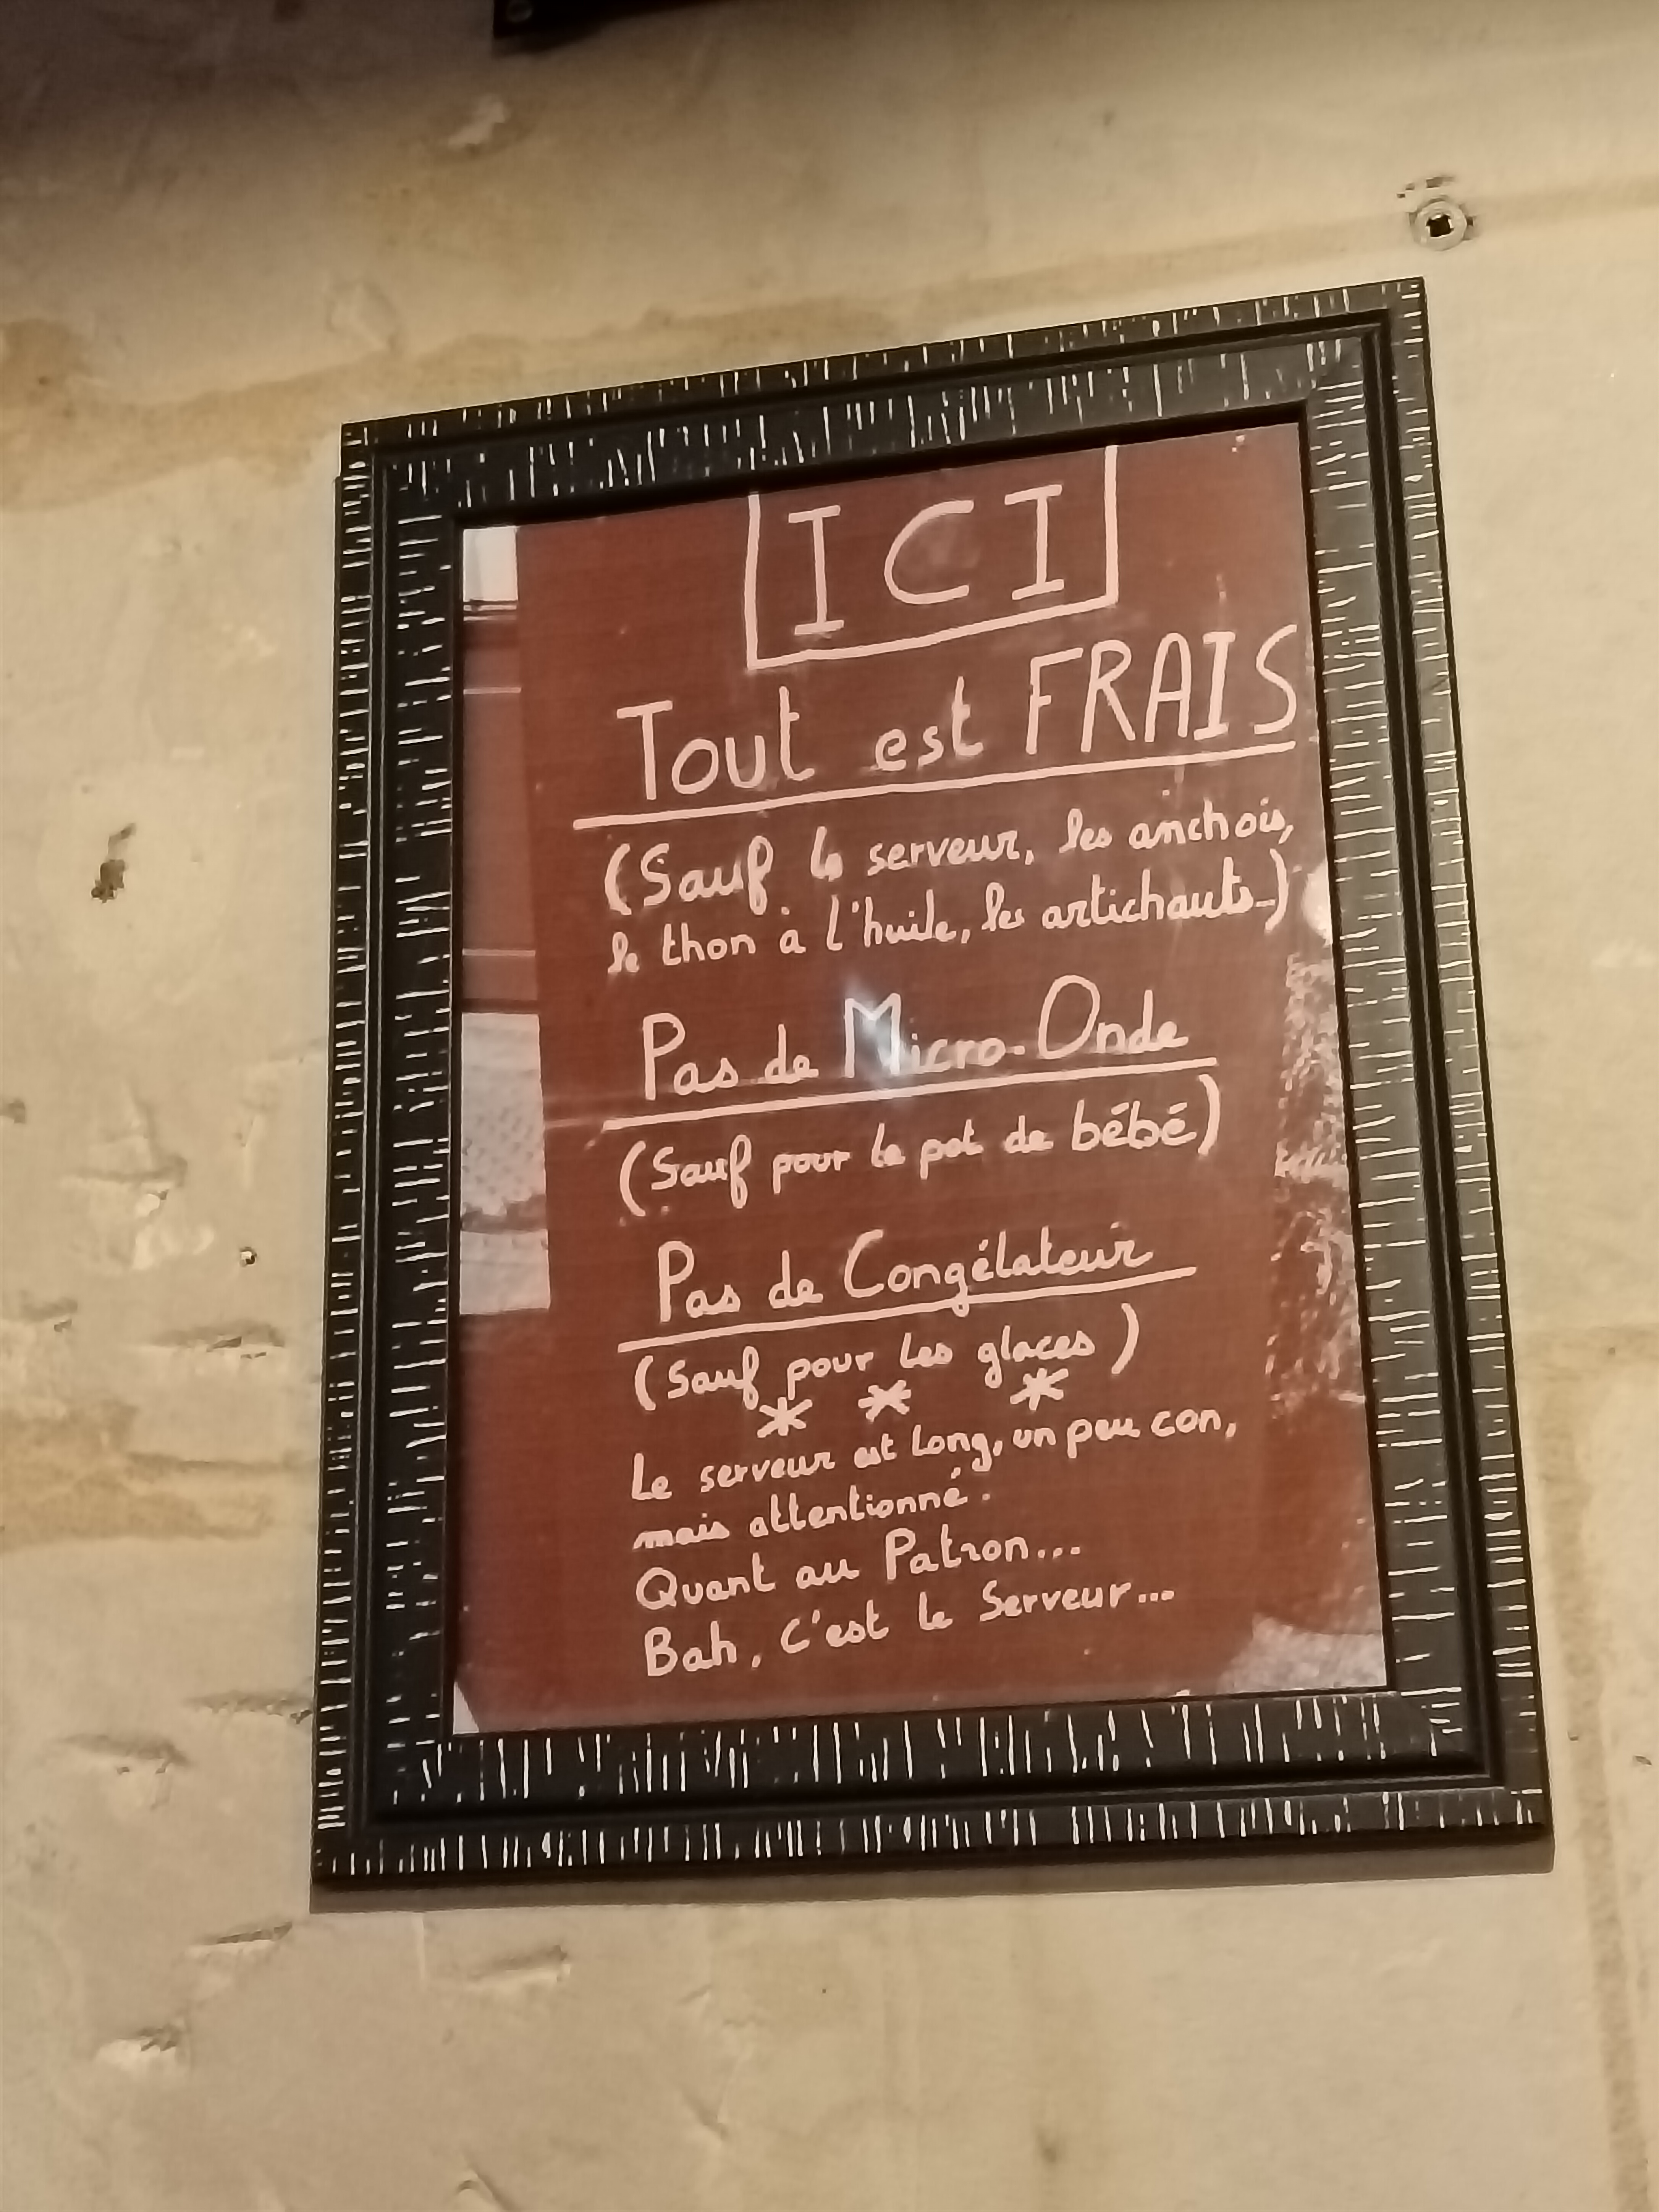 ICI
Tout est FRAIS
(Sauf le serveur, les anchois,
le thon à l'huile, les artichauts..)
Pas de Micro-Onde
(Sauf pour le pot de bébé)
Pas de Congélateur
(Sauf pour les glaces)
* * *
Le serveur est long, un peu con,
mais attentionné.
Quant au Patron...
Bah, c'est le Serveur...